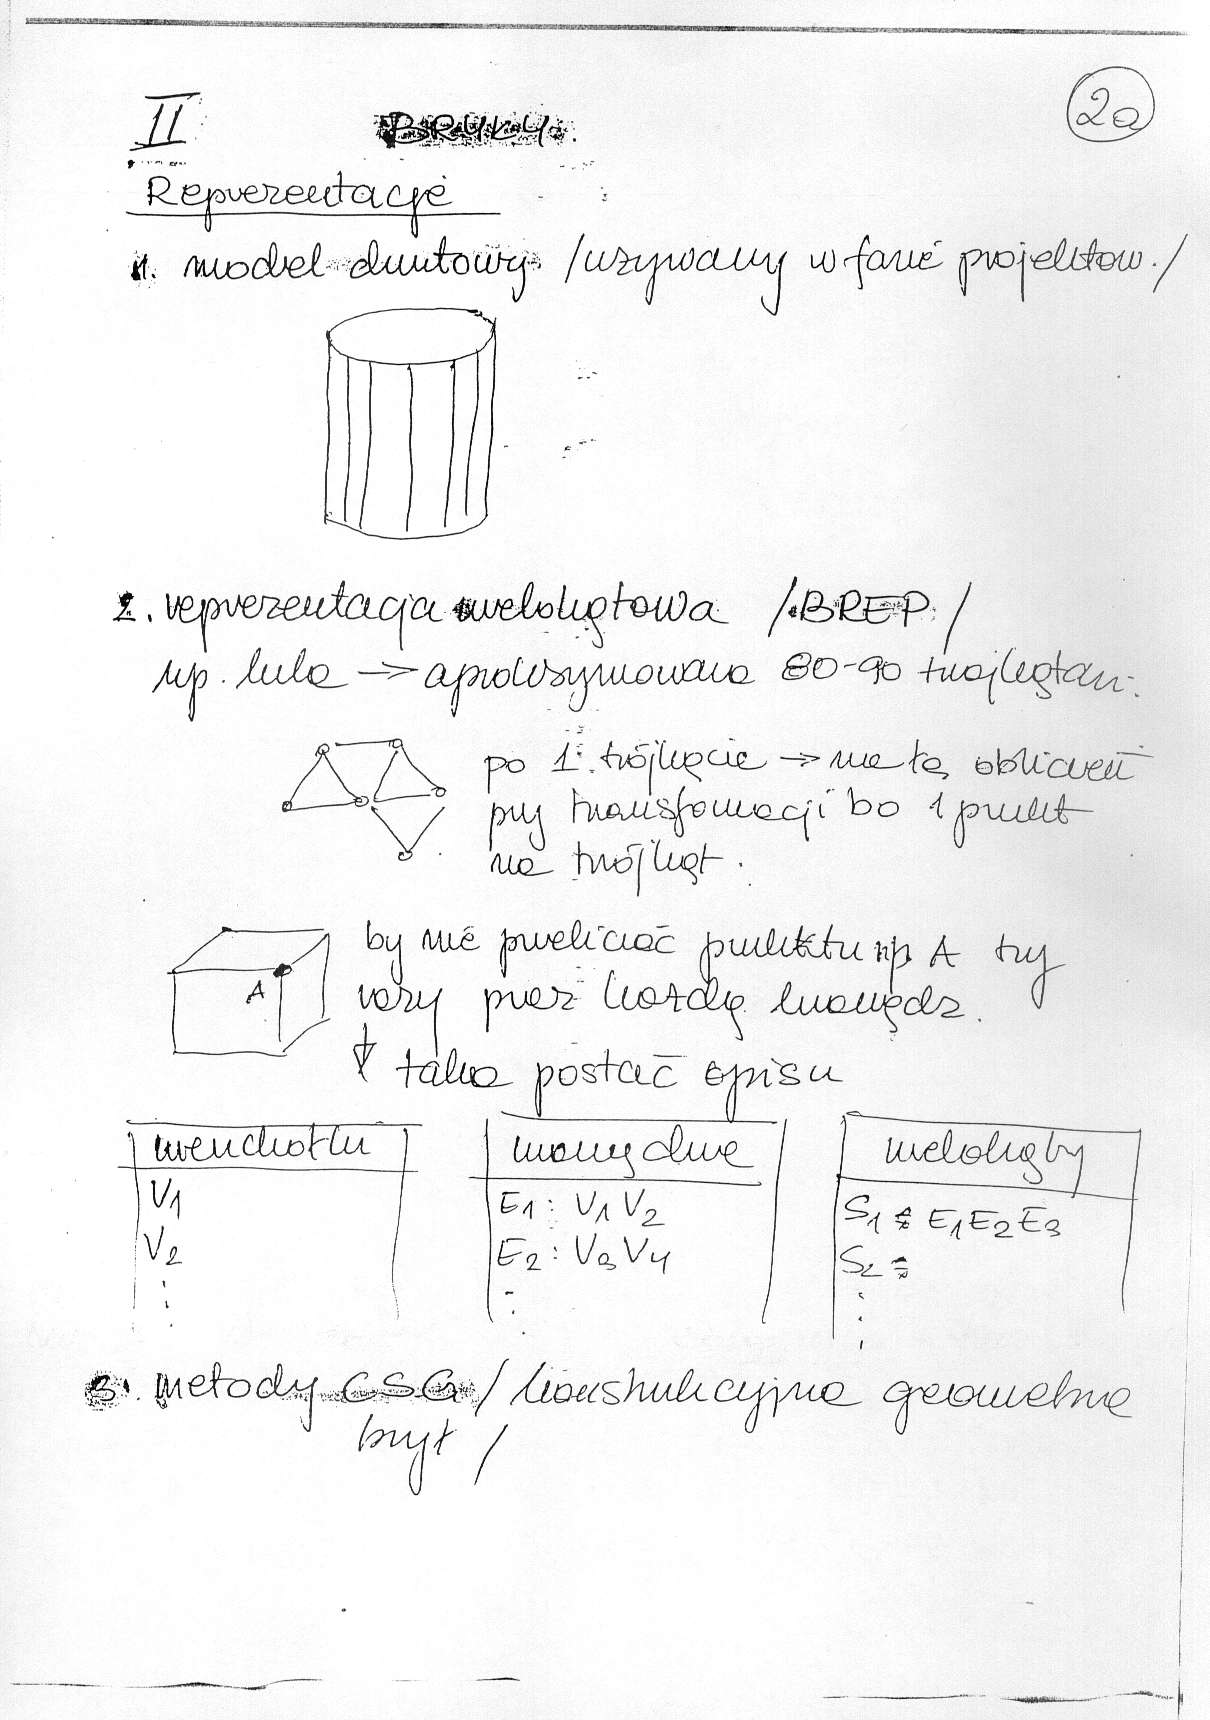 II BRYŁY 2a
Reprezentacje
1. model drutowy /używany w fazie projektow./
2. reprezentacja wielokątowa /BREP/
np. kula → aproksymowana 80-90 trójkątami.
po 1. trójkącie → mało obliczeń
przy transformacji bo 1 punkt
na trójkąt.
by nie przeliczać punktu np A trzy
razy przez każdą krawędź.
A
taka postać opisu
wierzchołki krawędzie wielokąty
V1 E1: V1 V2 S1 = E1E2E3
V2 E2: V3 V4 S2 =
3. metody CSG / konstrukcyjna geometria
brył /